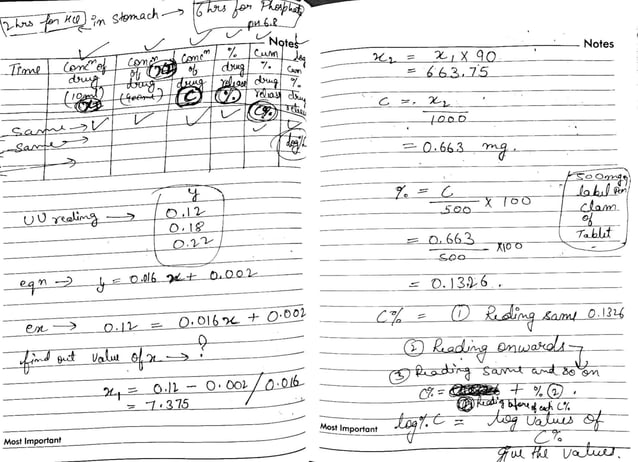 2 hrs for HCl in Stomach → 6 hrs for Phosphate
pH 6.8
Notes
Time
Concⁿ of drug (10ml) x₁
Concⁿ of drug (900ml) x₂
Concⁿ of drug C
% drug release %
Cum %. drug release C%
log Cum %. drug release
log%C
Same →
Same →
→
y
UV reading → 0.12
0.18
0.22
eqn → y = 0.016 x + 0.002
ex → 0.12 = 0.016x + 0.002
find out value of x → ?
x₁ = 0.12 - 0.002 / 0.016
= 7.375
Most Important
Notes
x₂ = x₁ x 90
= 663.75
C = x₂
1000
= 0.663 mg.
%. = C
500 x 100
= 0.663
500 x100
= 0.1326.
500mg
label
Claim
of
Tablet
C% = ① Reading same 0.1326
② Reading onwards →
③ Reading same and so on
C% = + % ②.
Reading before of each C%
log%.C = log values of
C%
give the values.
Most Important